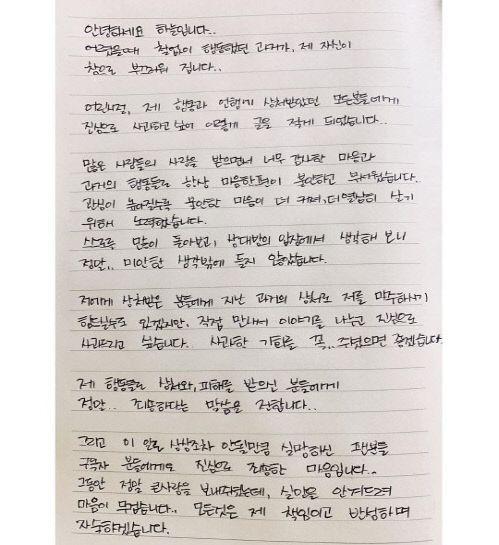 안녕하세요 하늘입니다..
어렸을때 철없이 행동했던 과거가, 제 자신이
참으로 부끄러워 집니다..
어린시절, 제 행동과 언행에 상처받았던 모든분들에게
진심으로 사과하고 싶어 이렇게 글을 적게 되었습니다..
많은 사람들의 사랑을 받으면서 너무 감사한 마음과
과거의 행동들로 항상 마음한편이 불안하고 무서웠습니다.
관심이 높아질수록 불안한 마음이 더 커져, 더 열심히 살기
위해 노력했습니다.
스스로 많이 돌아보고, 상대방의 입장에서 생각해 보니
정말.. 미안한 생각밖에 들지 않았습니다.
저에게 상처받은 분들에게 지난 과거의 상처로 저를 마주하시기
힘드실수도 있겠지만, 직접 만나서 이야기를 나누고 진심으로
사과드리고 싶습니다.. 사과할 기회를 꼭.. 주셨으면 좋겠습니다
제 행동들로 상처와, 피해를 받으신 분들에게
정말.. 죄송하다는 말씀을 전합니다..
그리고 이 일로 상상조차 안될만큼 실망하신 팬분들
구독자 분들에게도 진심으로 죄송한 마음입니다..
그동안 정말 큰사랑을 보내주셨는데, 실망을 안겨드려
마음이 무겁습니다.. 모든것은 제 책임이고 반성하며
자숙하겠습니다.